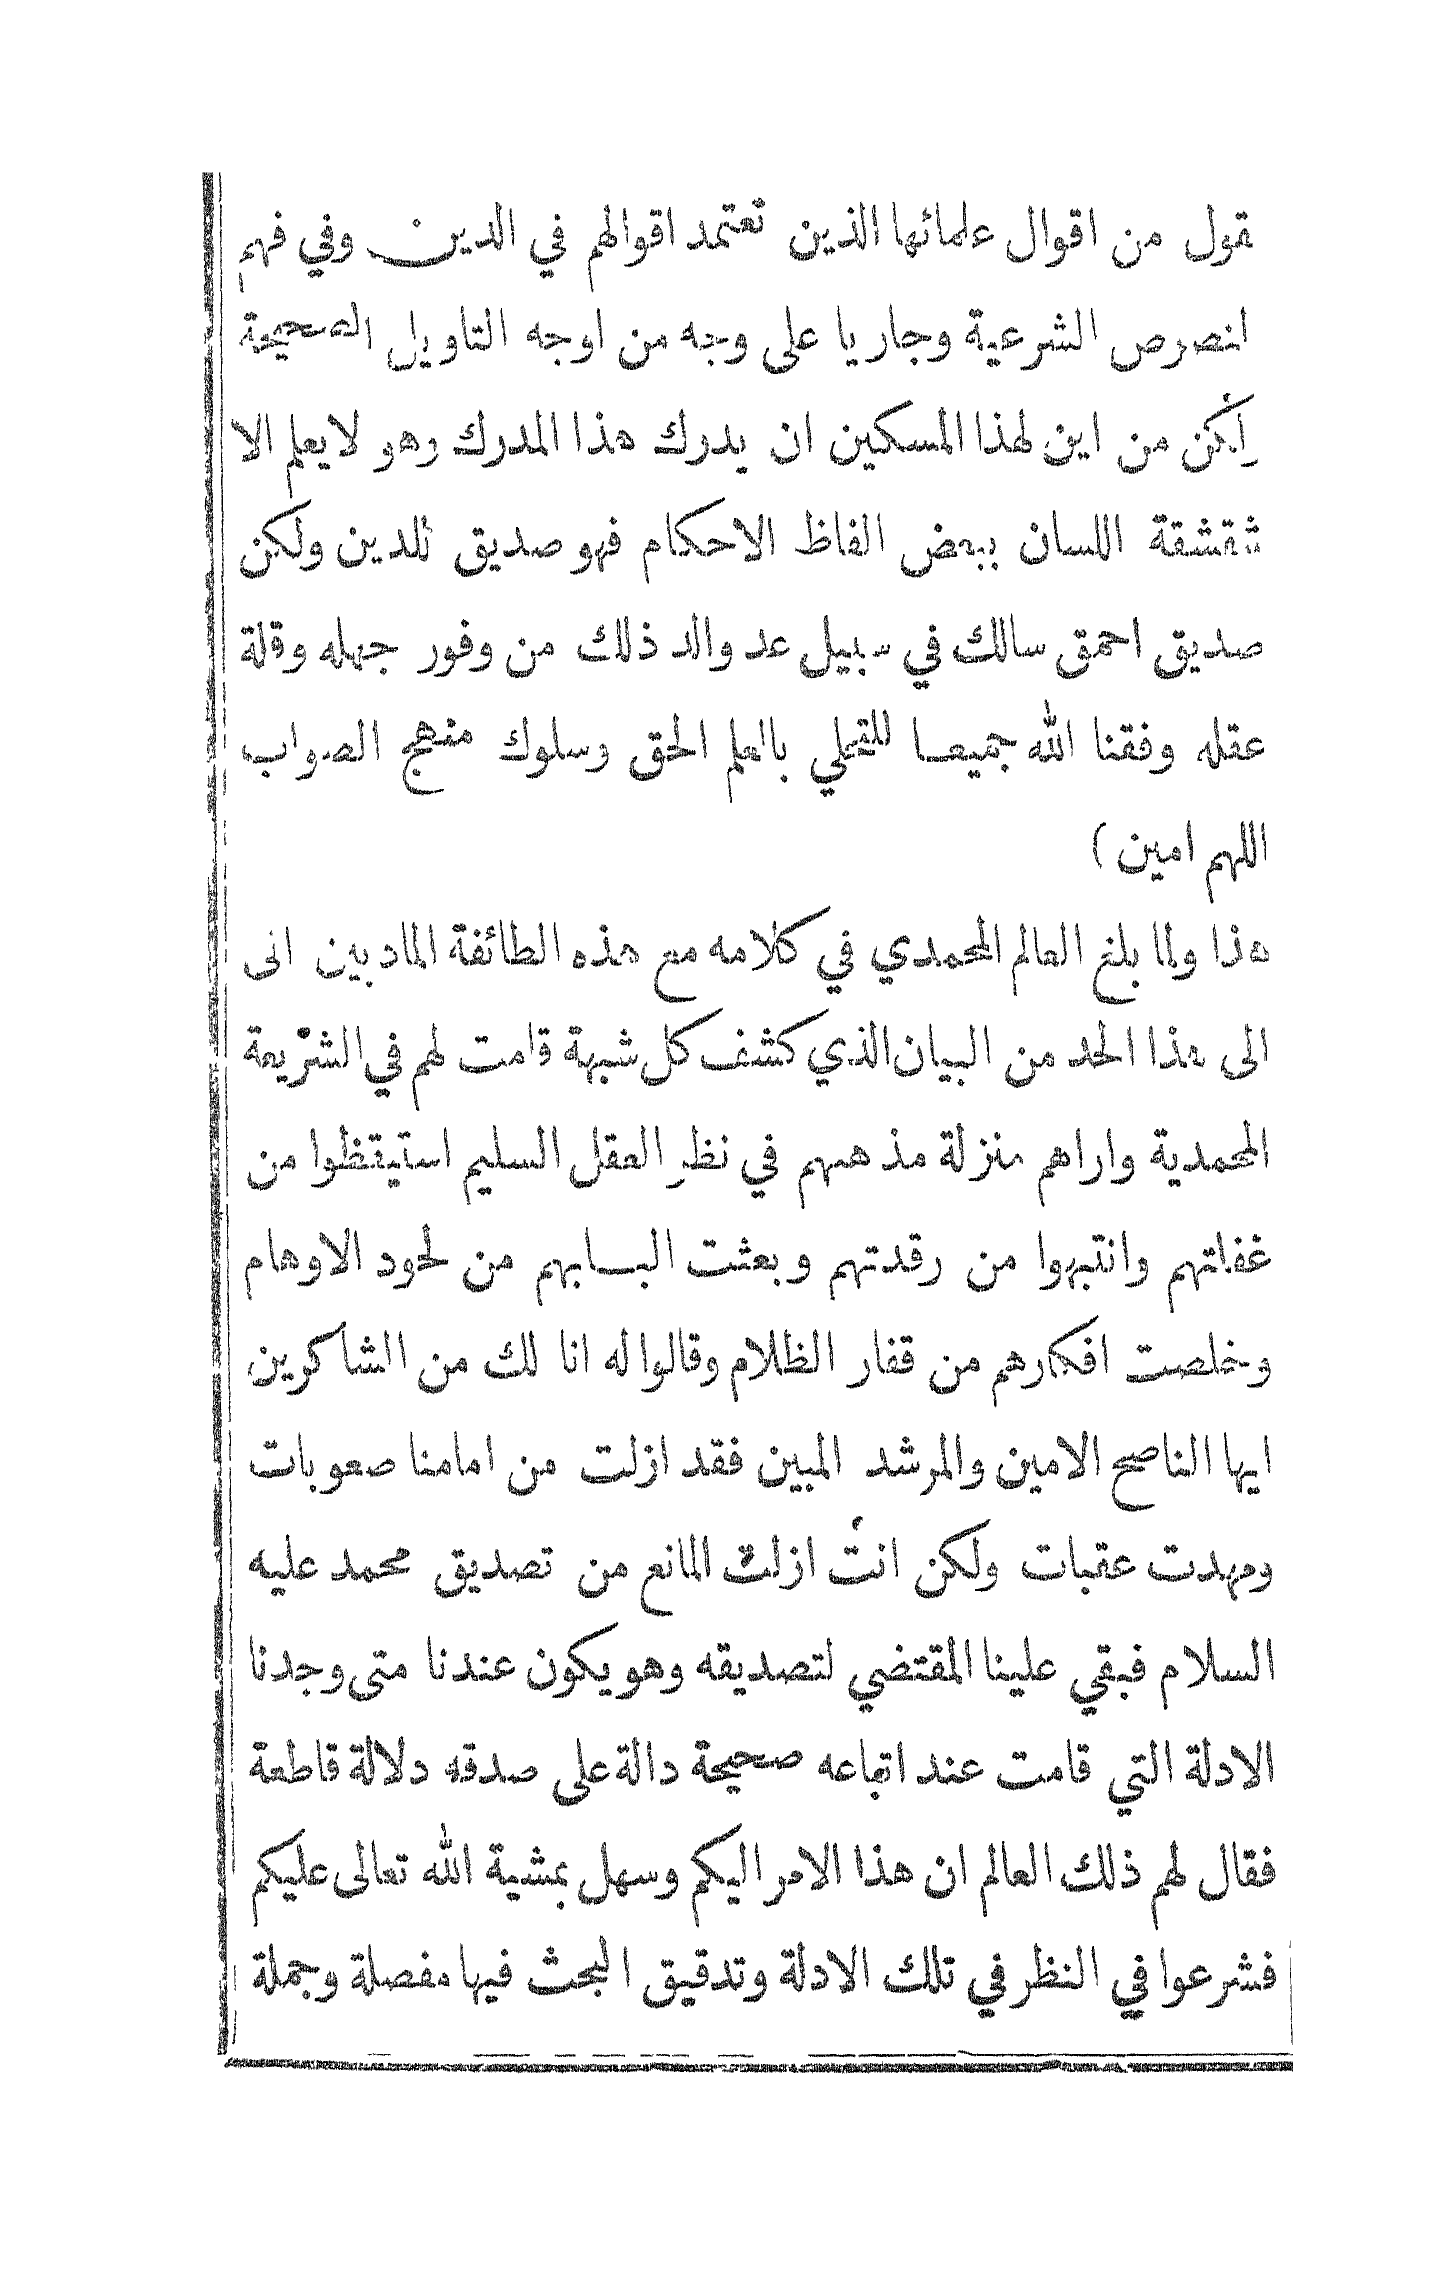 بقول من اقوال علمائها الذين تعتمد اقوالهم في الدين وفي فهم
النصوص الشرعية وجاريا على وجه من اوجه التاويل الصحيحة
لكن من اين لهذا المسكين ان يدرك هذا المدرك وهو لا يعلم الا
شقشقة اللسان ببعض الفاظ الاحكام فهو صديق للدين ولكن
صديق احمق سالك في سبيل عد والد ذلك من وفور جهله وقلة
عقله وفقنا الله جميعا للتحلي بالعلم الحق وسلوك منهج الصواب
اللهم امين )
هذا ولما بلغ العالم المحمدي في كلامه مع هذه الطائفة الماديين انى
الى هذا الحد من البيان الذي كشف كل شبهة قامت لهم في الشريعة
المحمدية واراهم منزلة مذهبهم في نظر العقل السليم استيقظوا من
غفلتهم وانتبهوا من رقدتهم وبعثت البابهم من لحود الاوهام
وخلصت افكارهم من قفار الظلام وقالوا له انا لك من الشاكرين
ايها الناصح الامين والمرشد المبين فقد ازلت من امامنا صعوبات
ومهدت عقبات ولكن انت ازلت المانع من تصديق محمد عليه
السلام فبقي علينا المقتضي لتصديقه وهو يكون عندنا متى وجدنا
الادلة التي قامت عند اتباعه صحيحة دالة على صدقه دلالة قاطعة
فقال لهم ذلك العالم ان هذا الامر اليكم وسهل بمشية الله تعالى عليكم
فشرعوا في النظر في تلك الادلة وتدقيق البحث فيها مفصلة وجملة